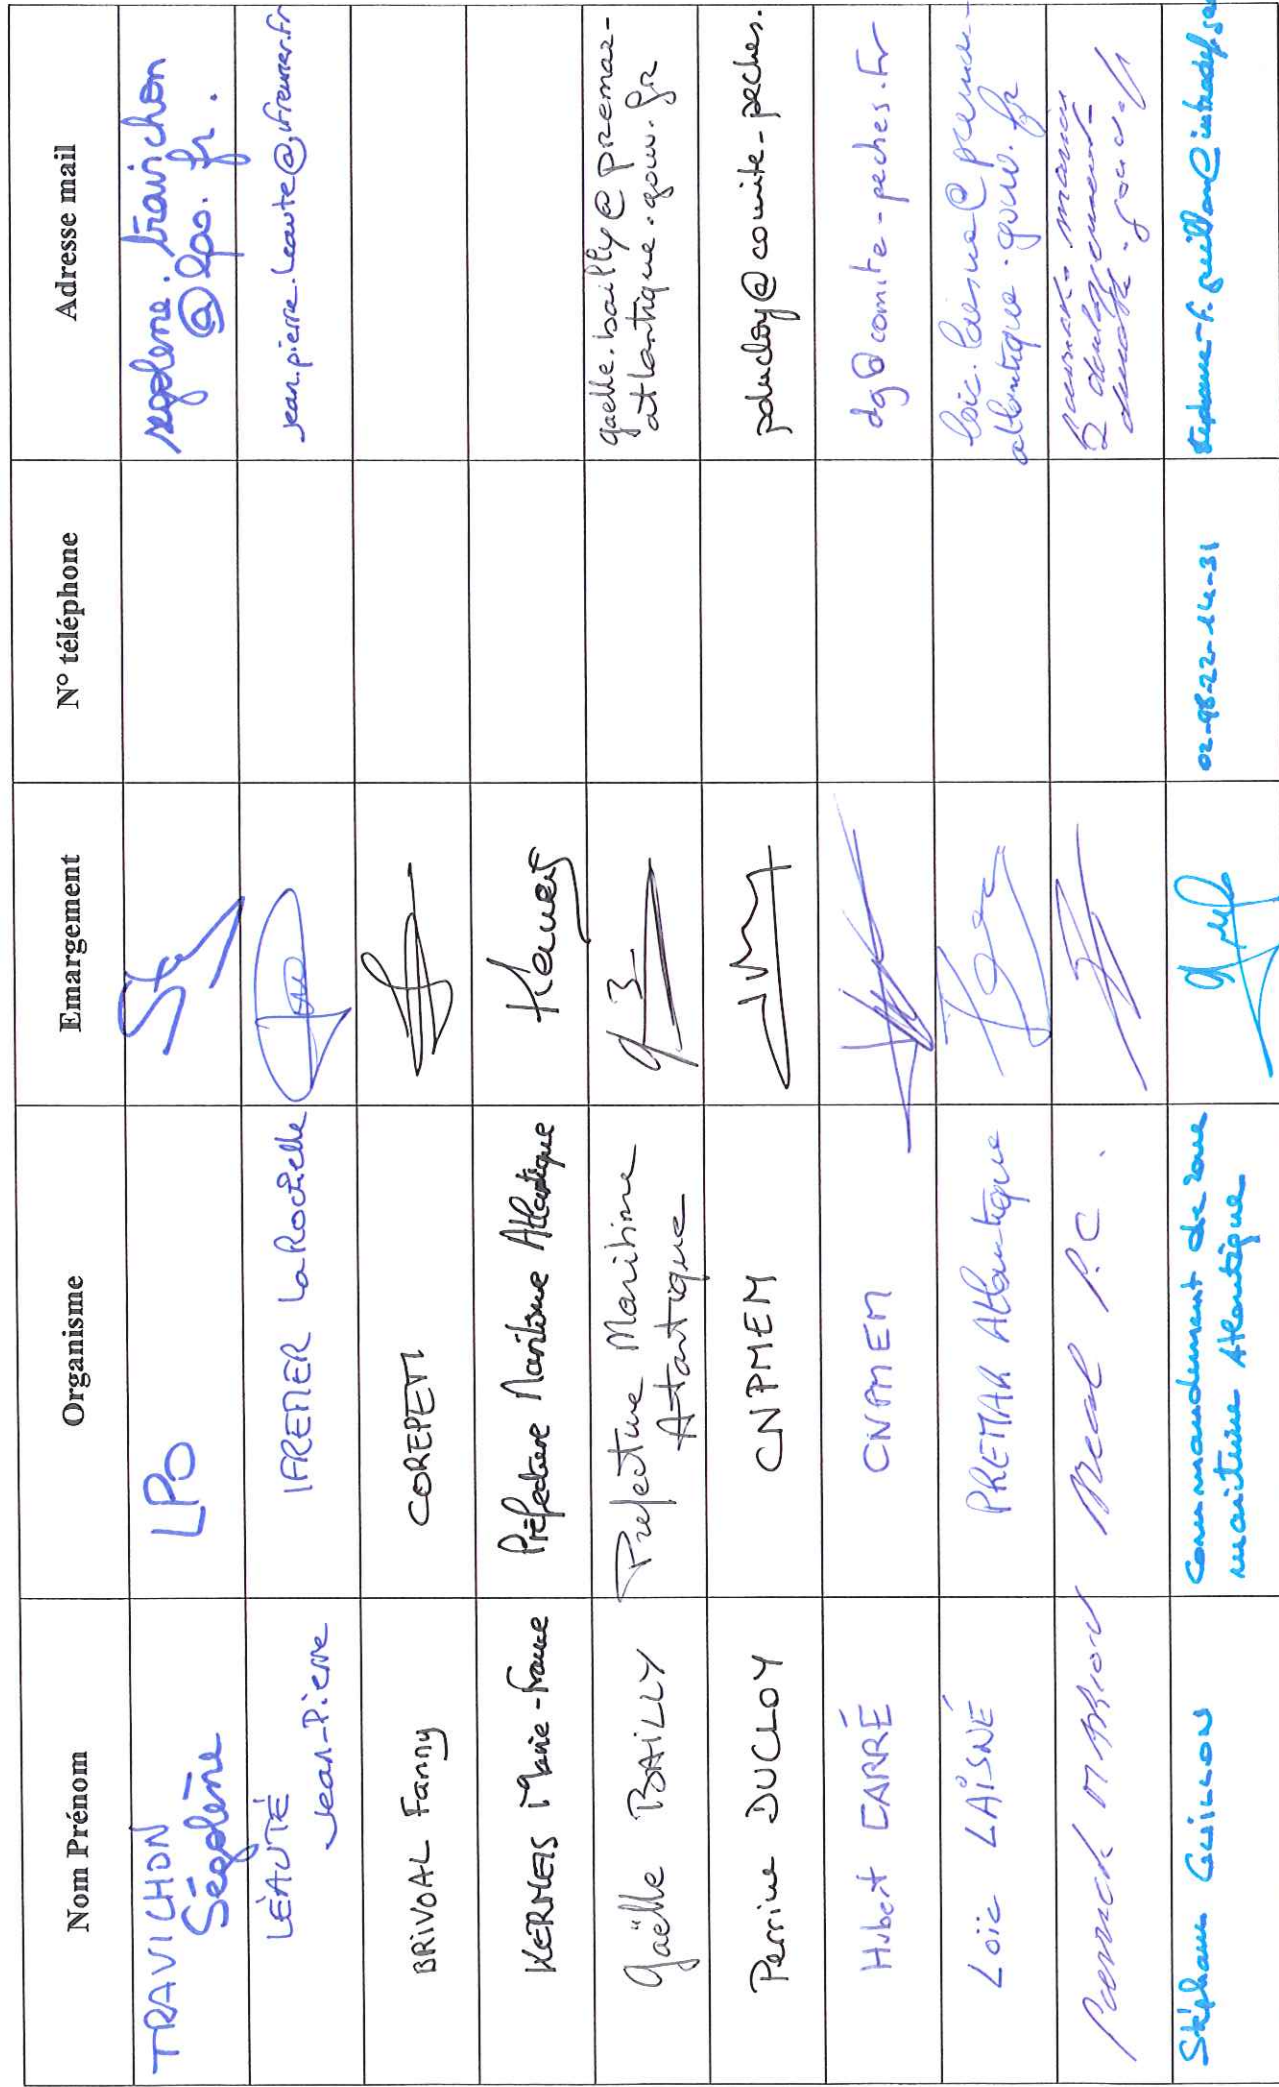 Nom Prénom
Organisme
Emargement
N° téléphone
Adresse mail
TRAVICHON
Ségolène
LPO
segolene.travichon
@lpo.fr.
LÉAUTÉ
Jean-Pierre
IFREMER La Rochelle
jean.pierre.leaute@ifremer.fr
BRIVOAL Fanny
COREPEM
KERMEIS Marie-France
Préfecture Maritime Atlantique
Gaëlle BAILLY
Prefecture Maritime
Atlantique
gaelle.bailly@premar-
atlantique.gouv.fr
Perrine DUCLOY
CNPMEM
pducloy@comite-peches.
Hubert CARRÉ
CNPMEM
dg@comite-peches.fr
Loïc LAISNÉ
PREMAR Atlantique
loic.laisne@premar-
atlantique.gouv.fr
MARION
P.C.
Stéphane GUILLON
Commandement de zone
maritime Atlantique
02-98-22-14-31